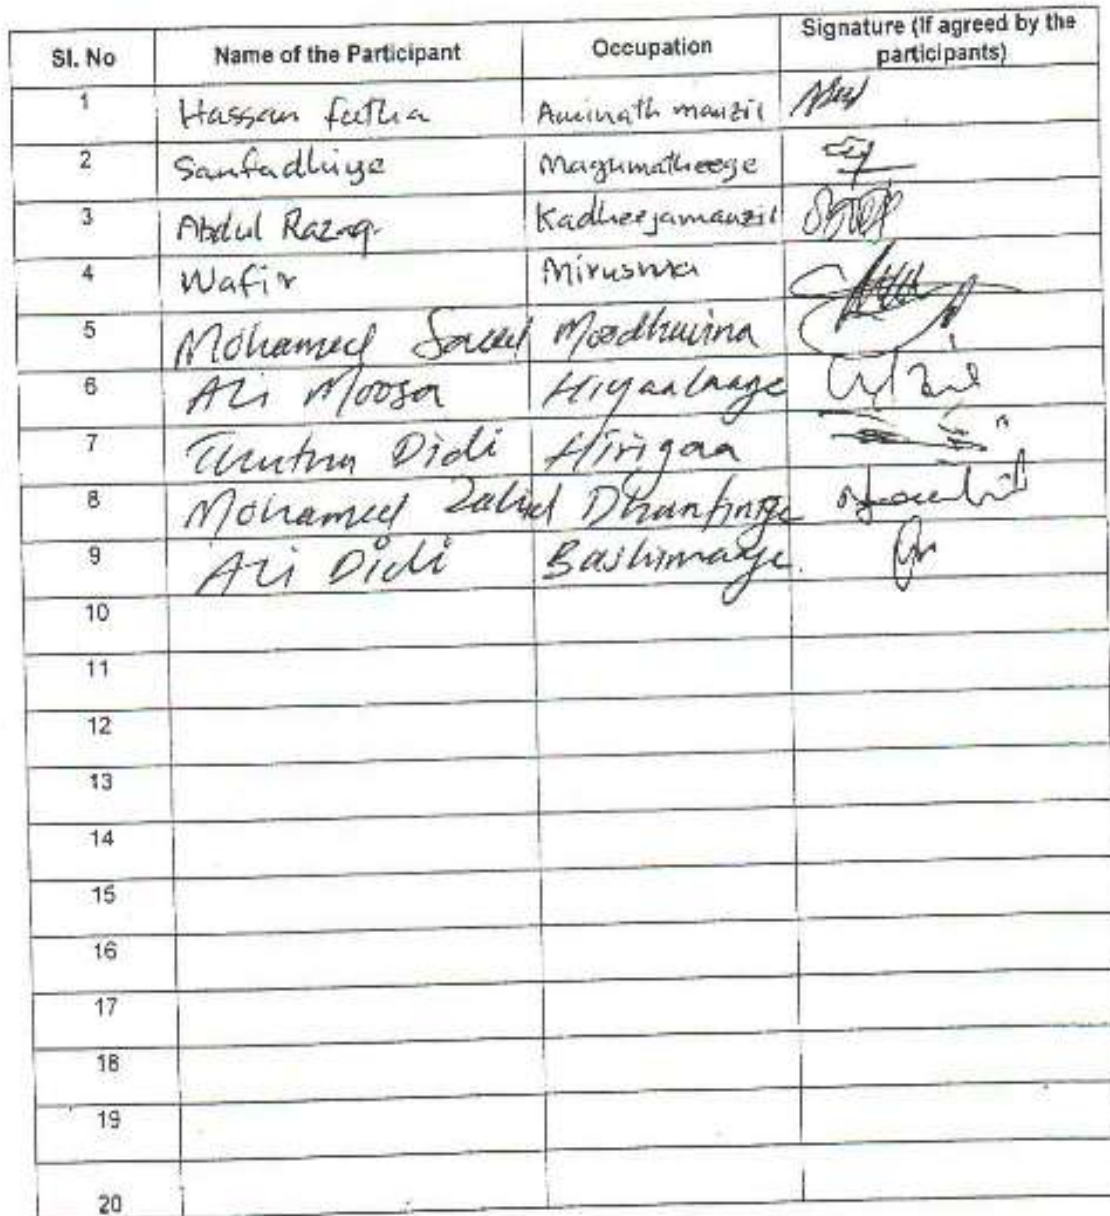 Sl. No Name of the Participant Occupation Signature (If agreed by the participants)
1 Hassan fathia Aminath manzil
2 Sanfadhiye Magumatheege
3 Abdul Razaq Kadheejamanzil
4 Wafir
5 Mohamed Saeed Moodhuvina
6 Ali Moosa Hiyaalaage
7 Didi Hirigaa
8 Mohamed Zahid
9 Ali Didi Bashimaage.
10
11
12
13
14
15
16
17
18
19
20